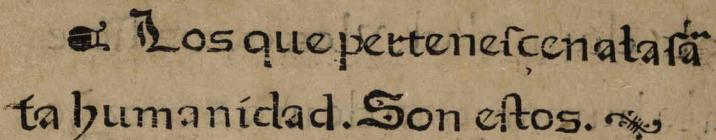 ☙ Los que perteneſcen a la ſã
ta humanidad. Son eſtos. ❧